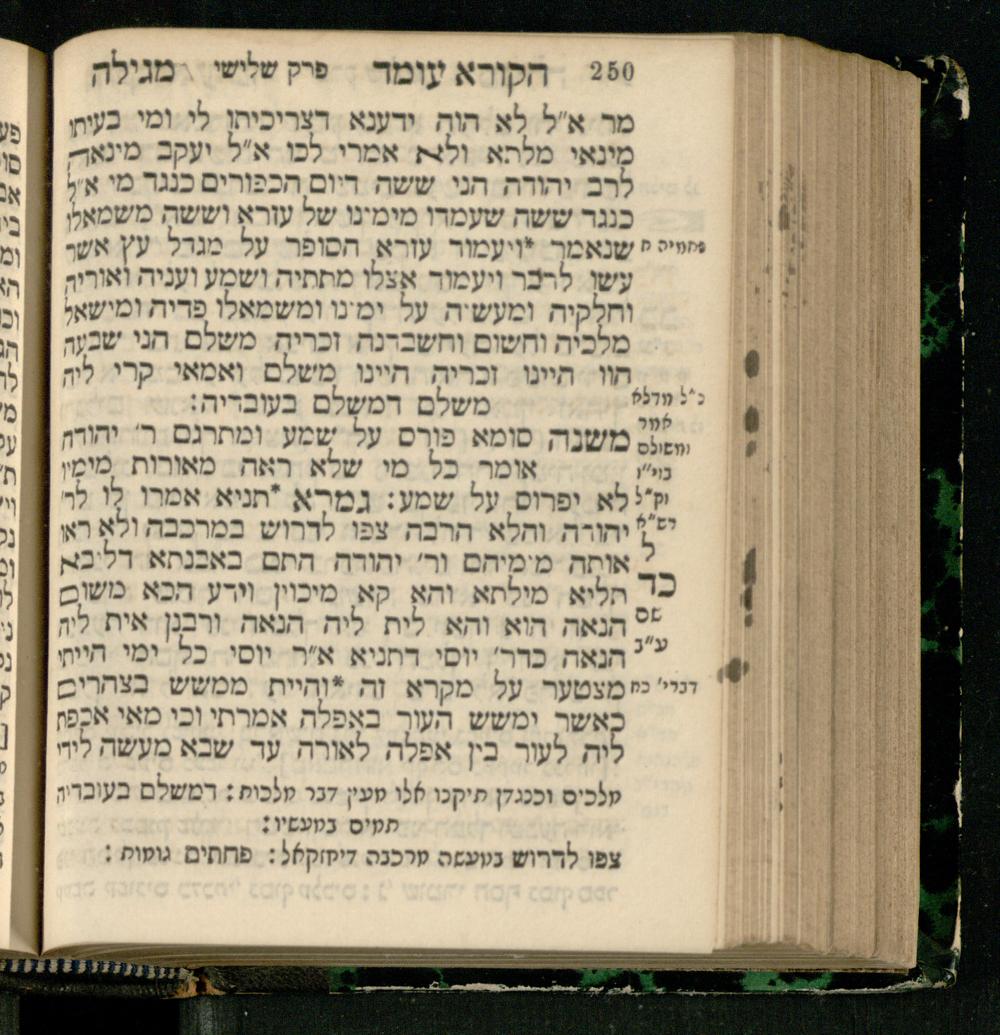 250 הקורא עומד פרק שלישי מגילה
מר א״ל לא הוה ידענא דצריכיתו לי ומי בעיתו
מינאי מלתא ולא אמרי לכו א״ל יעקב מינאה
לרב יהודה הני ששה דיום הכפורים כנגד מי א״ל
כנגד ששה שעמדו מימינו של עזרא וששה משמאלו
נחמיה ח
שנאמר *ויעמוד עזרא הסופר על מגדל עץ אשר
עשו לדבר ויעמוד אצלו מתתיה ושמע ועניה ואוריה
וחלקיה ומעשיה על ימינו ומשמאלו פדיה ומישאל
מלכיה וחשום וחשבדנה זכריה משלם הני שבעה
הוו היינו זכריה היינו משלם ואמאי קרי ליה
משלם דמשלם בעובדיה:
נ״ל מדלא
אמר
ומשולם
בוי״ו
וק״ל
רש״א
משנה סומא פורס על שמע ומתרגם ר׳ יהודה
אומר כל מי שלא ראה מאורות מימיו
לא יפרוס על שמע: גמרא *תניא אמרו לו לר׳
יהודה והלא הרבה צפו לדרוש במרכבה ולא ראו
ל
אותה מימיהם ור׳ יהודה התם באבנתא דליבא
כד
תליא מילתא והא קא מיכוין וידע הכא משום
שם
הנאה הוא והא לית ליה הנאה ורבנן אית ליה
ע״ב
הנאה כדר׳ יוסי דתניא א״ר יוסי כל ימי הייתי
דברי׳ כח
מצטער על מקרא זה *והיית ממשש בצהרים
כאשר ימשש העור באפלה אמרתי וכי מאי אכפת
ליה לעור בין אפלה לאורה עד שבא מעשה לידי
מלכים וכנגדן תיקנו אלו מעין דבר מלכות: דמשלם בעובדיה
תמים במעשיו:
צפו לדרוש במעשה מרכבה דיחזקאל: פחתים גומות: